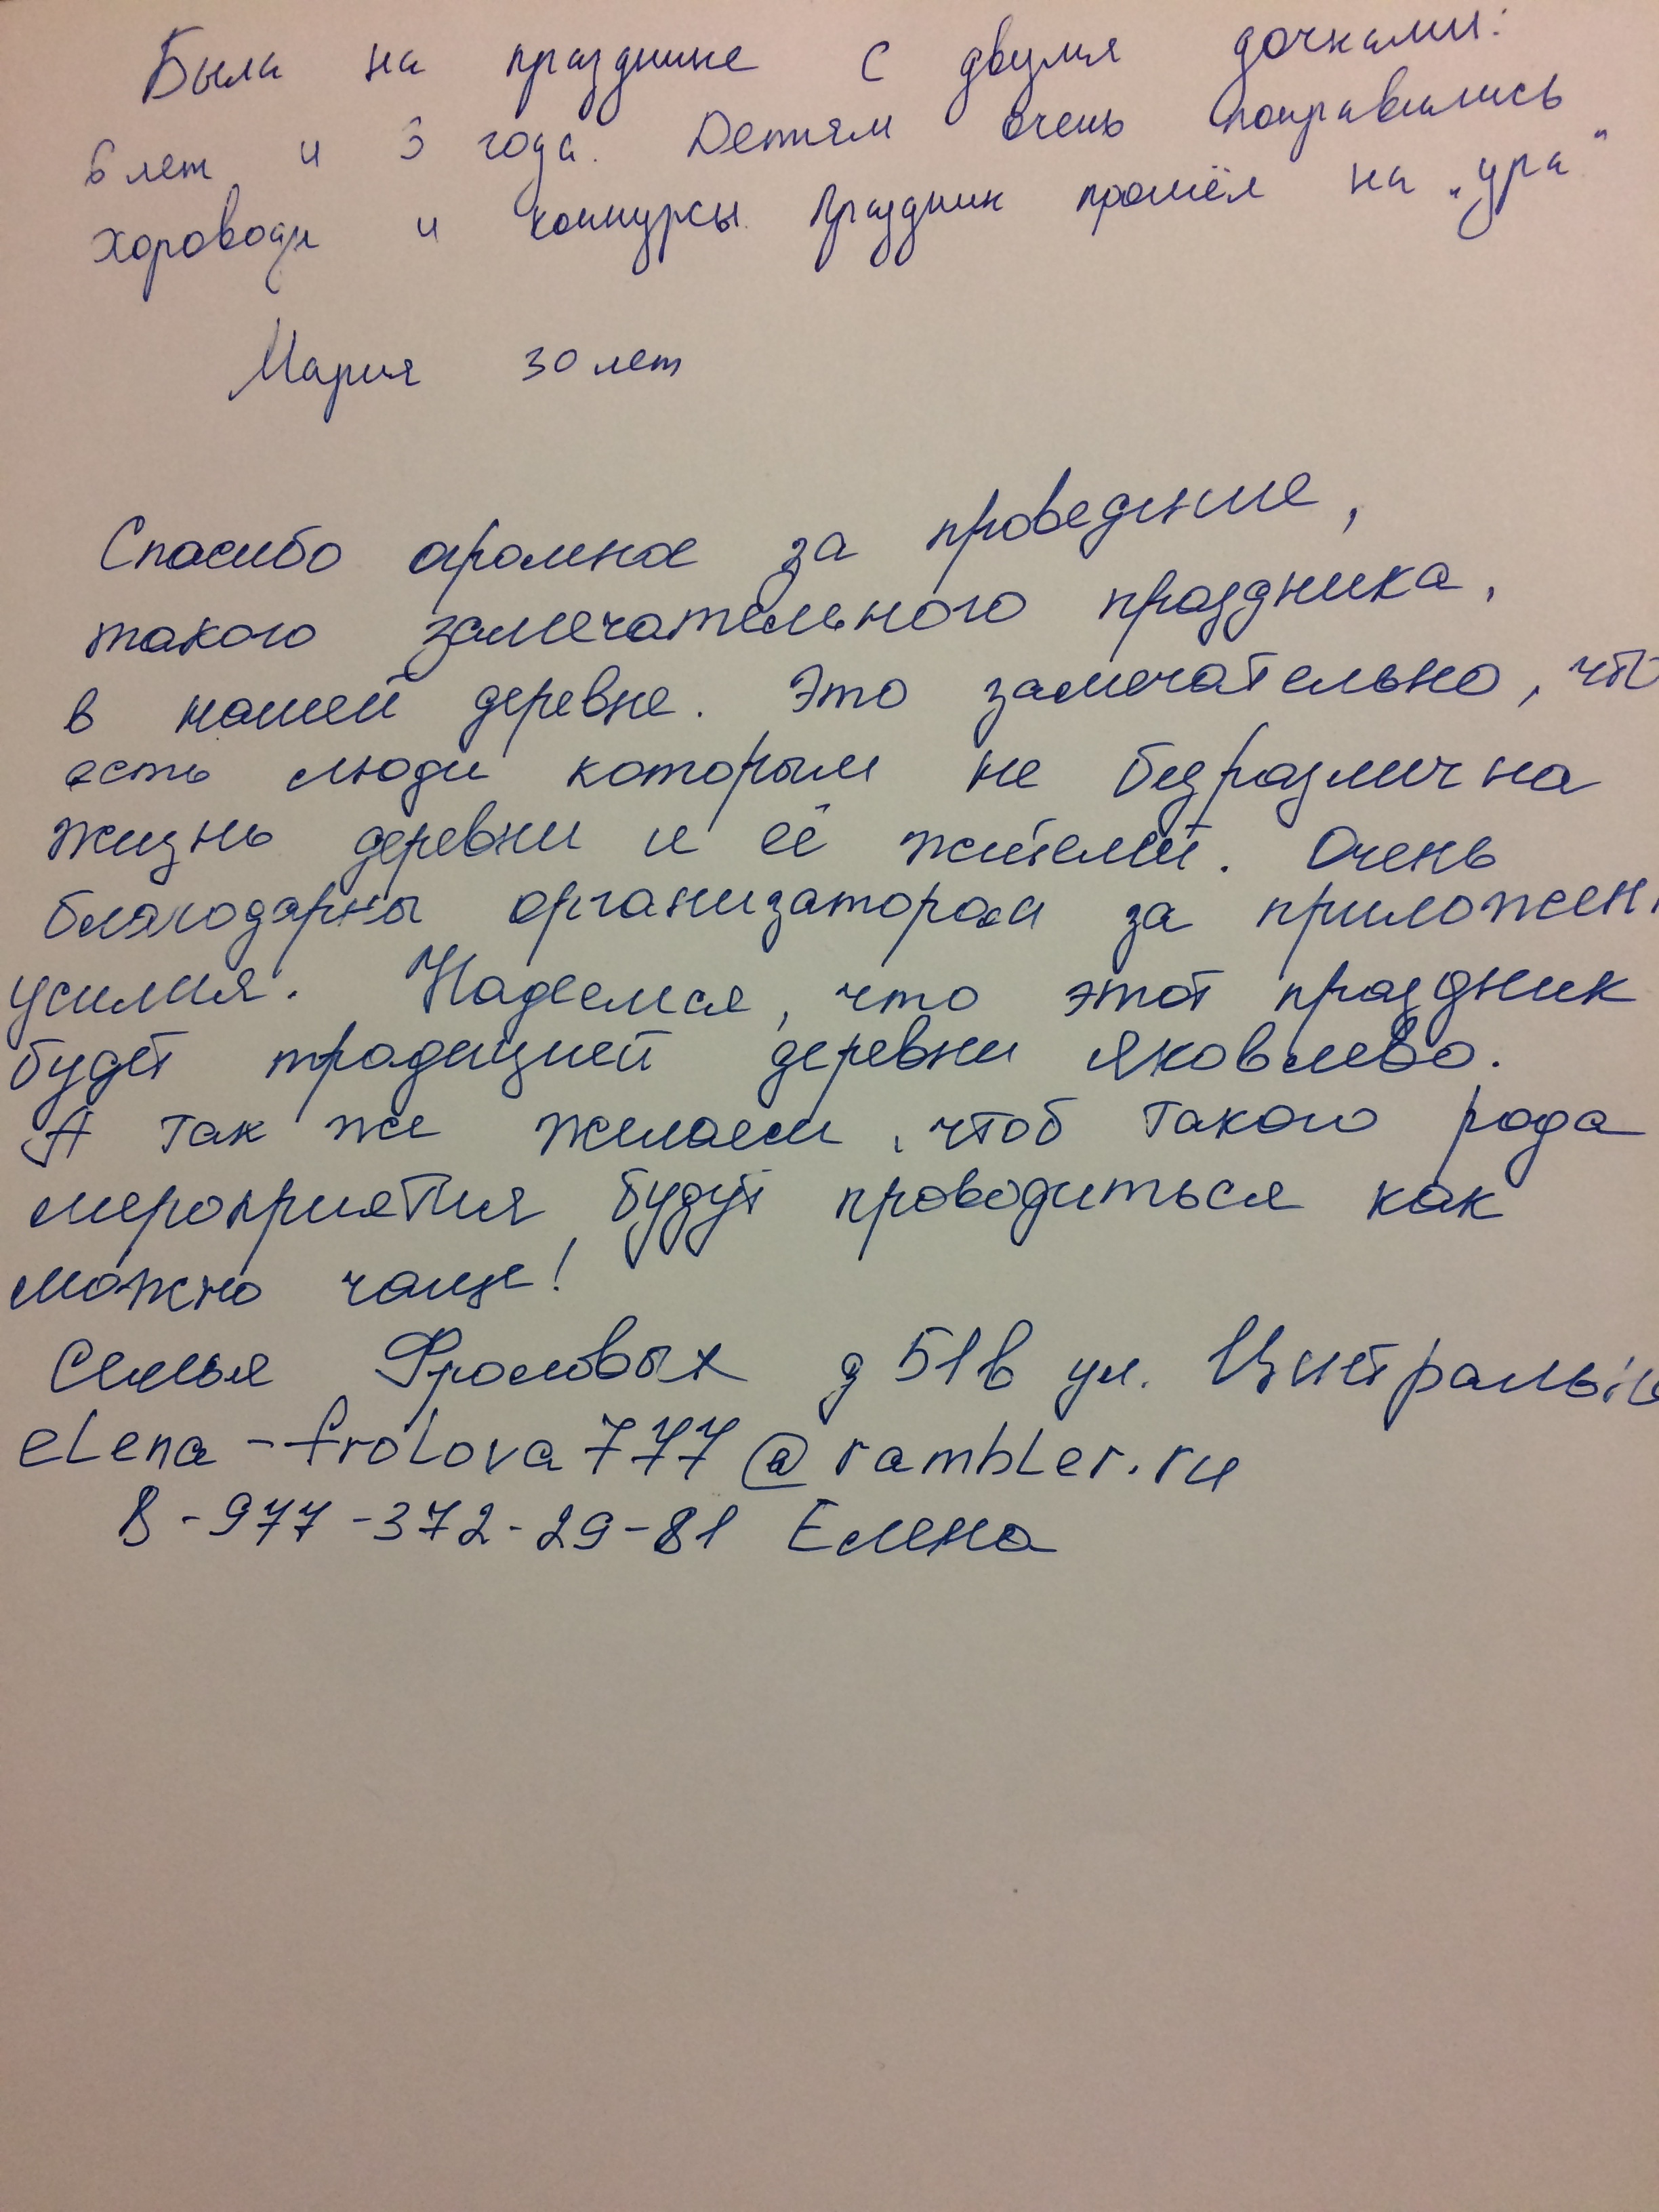 Была на празднике с двумя дочками:
6 лет и 3 года. Детям очень понравились
хороводы и конкурсы. Праздник прошёл на „ура"
Мария 30 лет
Спасибо огромное за проведение,
такого замечательного праздника,
в нашей деревне. Это замечательно, что
есть люди которым не безразлична
жизнь деревни и её жителей. Очень
благодарны организаторам за приложен
усилия. Надеемся, что этот праздник
будет традицией деревни Яковлево.
А так же желаем, чтоб такого рода
мероприятия будут проводиться как
можно чаще!
Семья Фроловых д 51в ул. Центральн
elena-frolova777@rambler.ru
8-977-372-29-81 Елена